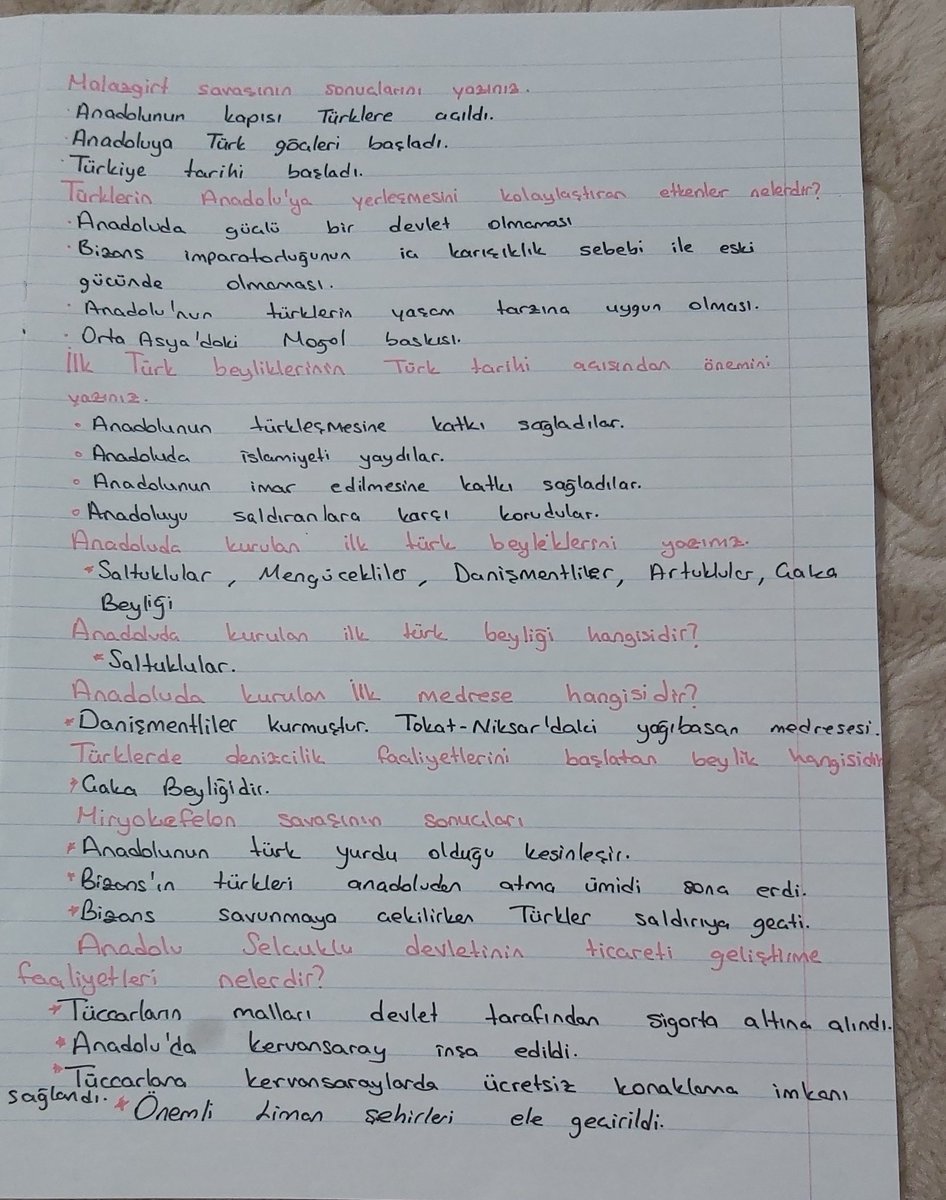 Malazgirt savaşının sonuçlarını yazınız.
· Anadolunun kapısı Türklere açıldı.
· Anadoluya Türk göçleri başladı.
· Türkiye tarihi başladı.
Türklerin Anadolu'ya yerleşmesini kolaylaştıran etkenler nelerdir?
· Anadoluda güçlü bir devlet olmaması
· Bizans imparatorluğunun iç karışıklık sebebi ile eski
gücünde olmaması.
· Anadolu'nun türklerin yaşam tarzına uygun olması.
· Orta Asya'daki Mogol baskısı.
İlk Türk beyliklerinin Türk tarihi açısından önemini
yazınız.
° Anadolunun türkleşmesine katkı sağladılar.
° Anadoluda islamiyeti yaydılar.
° Anadolunun imar edilmesine katkı sağladılar.
° Anadoluyu saldıranlara karşı korudular.
Anadoluda kurulan ilk türk beyliklerini yazınız.
* Saltuklular, Mengücekliler, Danişmentliler, Artuklular, Çaka
Beyliği
Anadoluda kurulan ilk türk beyliği hangisidir?
* Saltuklular.
Anadoluda kurulan İlk medrese hangisidir?
* Danişmentliler kurmuştur. Tokat-Niksar'daki yağıbasan medresesi.
Türklerde denizcilik faaliyetlerini başlatan beylik hangisidir
* Çaka Beyliğidir.
Miryokefelon savaşının sonuçları
* Anadolunun türk yurdu olduğu kesinleşir.
* Bizans'ın türkleri anadoludan atma ümidi sona erdi.
* Bizans savunmaya çekilirken Türkler saldırıya geçti.
Anadolu Selçuklu devletinin ticareti geliştirme
faaliyetleri nelerdir?
* Tüccarların malları devlet tarafından sigorta altına alındı.
* Anadolu'da kervansaray inşa edildi.
* Tüccarlara kervansaraylarda ücretsiz konaklama imkanı
sağlandı. * Önemli Liman şehirleri ele geçirildi.